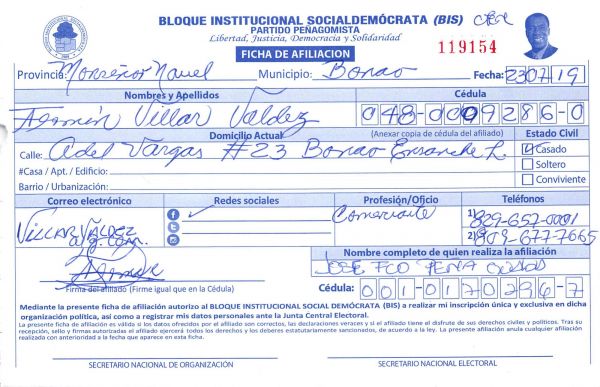 BLOQUE INSTITUCIONAL SOCIALDEMÓCRATA (BIS)
PARTIDO PEÑAGOMISTA
Libertad, Justicia, Democracia y Solidaridad
FICHA DE AFILIACION
119154
Provincia: Monseñor Nouel Municipio: Bonao Fecha: 23 07 19
Nombres y Apellidos Cédula
Fermín Villar Valdez 048-0009286-0
Domicilio Actual (Anexar copia de cédula del afiliado) Estado Civil
Calle: Adel Vargas #23 Bonao Ensanche L. Casado
#Casa / Apt. / Edificio: Soltero
Barrio / Urbanización: Conviviente
Correo electrónico Redes sociales Profesión/Oficio Teléfonos
VILLAR VALDEZ Comerciante 1) 829-657-0001
2) 809-677-7665
Nombre completo de quien realiza la afiliación
JOSE FCO PEÑA
Firma del afiliado (Firme igual que en la Cédula) Cédula: 001-0170296-7
Mediante la presente ficha de afiliación autorizo al BLOQUE INSTITUCIONAL SOCIAL DEMÓCRATA (BIS) a realizar mi inscripción única y exclusiva en dicha
organización política, así como a registrar mis datos personales ante la Junta Central Electoral.
La presente ficha de afiliación es válida si los datos ofrecidos por el afiliado son correctos, las declaraciones veraces y si el afiliado tiene el disfrute de sus derechos civiles y políticos. Tras su
recepción, sello y firmas autorizadas el afiliado ejercerá todos los derechos y los deberes estatutariamente sancionados, de acuerdo a la ley. La presente afiliación anula cualquier afiliación
realizada con anterioridad a la fecha que aparece en esta ficha.
SECRETARIO NACIONAL DE ORGANIZACIÓN SECRETARIO NACIONAL ELECTORAL